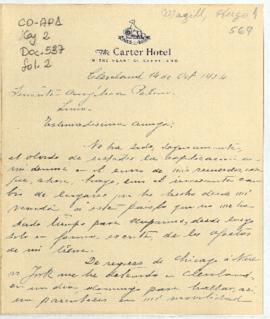 CO-APA
Caj. 2
Doc. 537
Fol. 2
Magill, Hugo
569
The Carter Hotel
IN THE HEART OF CLEVELAND
Cleveland 14 de Oct 1924
Señorita Angélica Palma
Lima
Estimadísima amiga:
No ha sido, seguramente,
el olvido de ustedes la explicación
mi demora en el envío de mis recuerdos,
ahora. Luego, con el incesante cam-
bio de lugares que he hecho desde mi
a este país que no me ha
dado tiempo para
en forma exenta de los afectos
de mi tierra.
De regreso de Chicago a New
York me he detenido en Cleveland,
en un día domingo para hallar, así
un paréntesis en mi movilidad